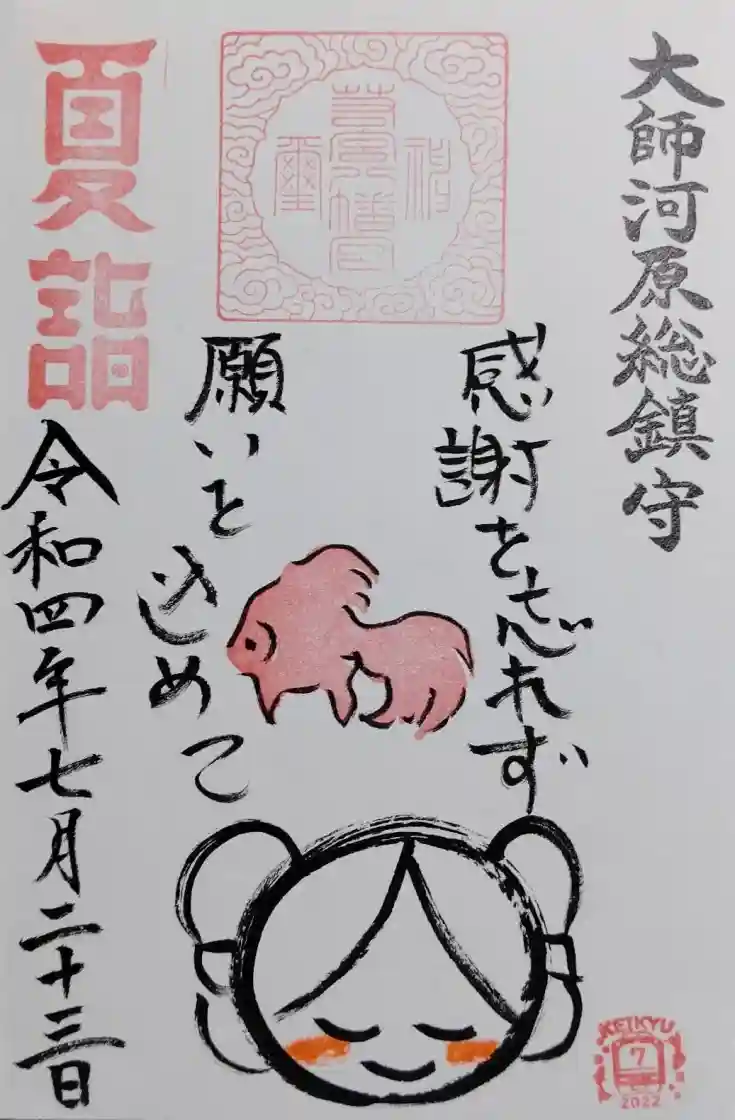 大師河原総鎮守
感謝を忘れず
願いを
込めて
夏詣
令和四年七月二十三日
KEIKYU
7
2022